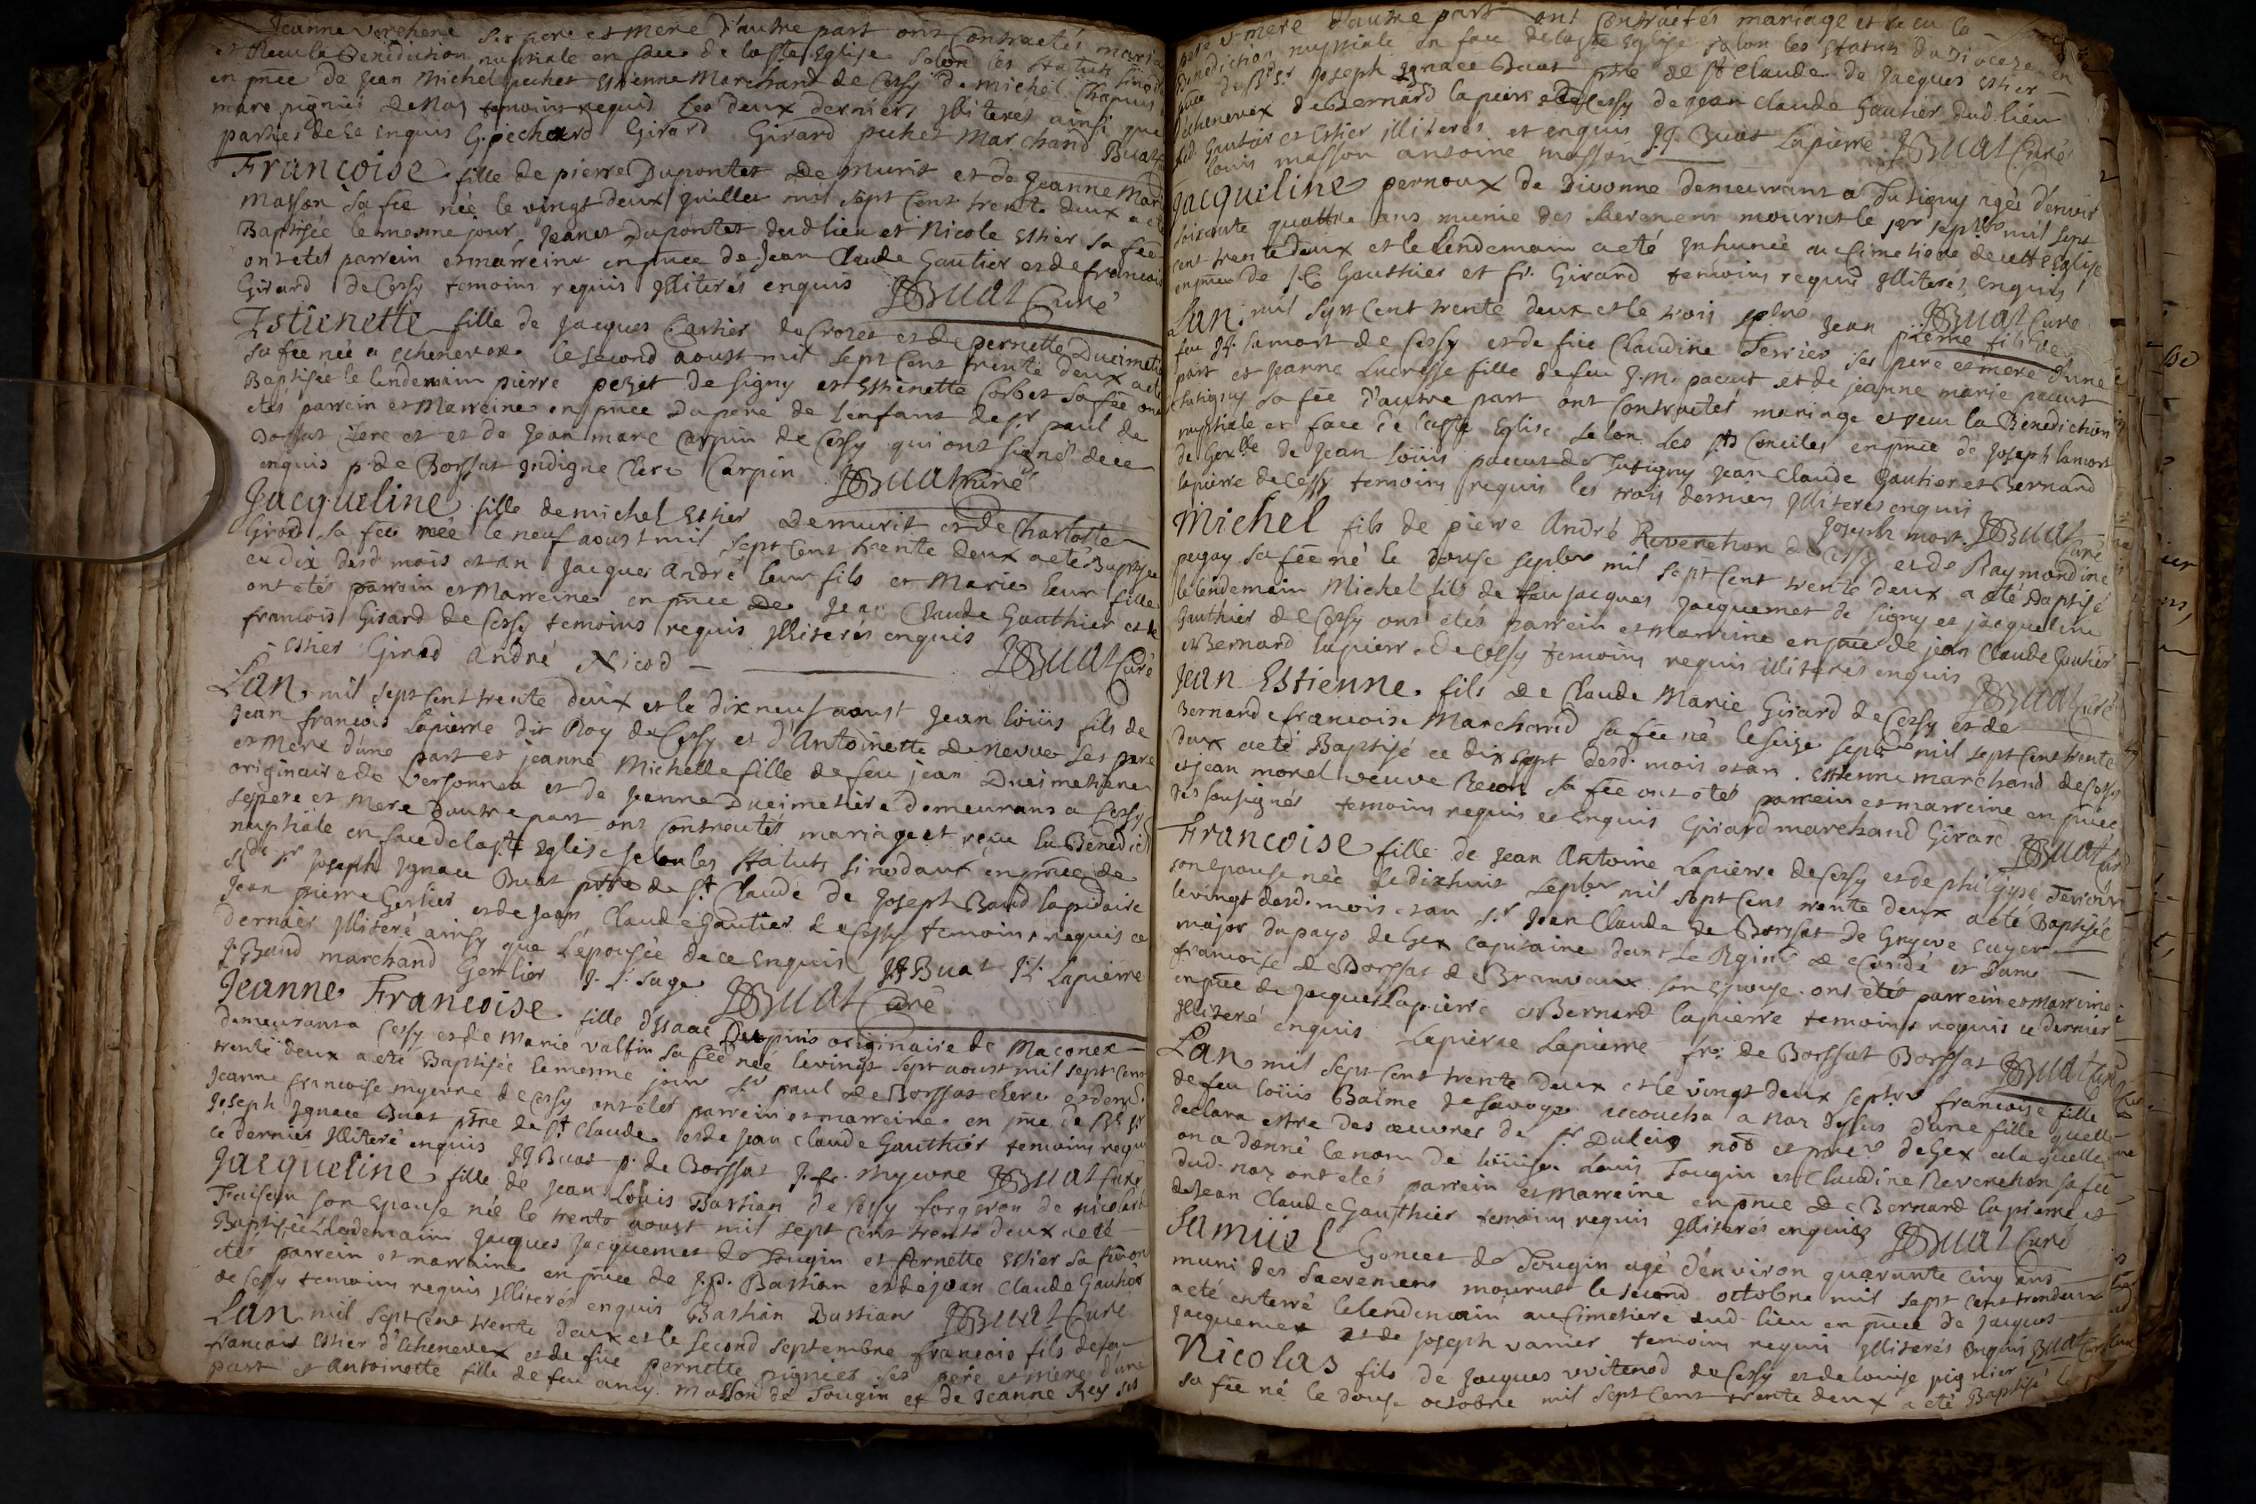 Jeanne Verchene ses pere et mere d'autre part ont contractés maria
et Receu la Benediction nuptiale en face de la Ste Eglise selon les statuts sinod
en pñce de Jean Michel pechet Estienne Marchand de Cessy de michel Chapuis
marc pignier de Noz temoins requis les deux derniers Illiterés ainsi que
parties de ce enquis G. pechard Girard Girard pechet Marchand Buat
Francoise fille de pierre Dupontet de murit et de Jeanne Mari
Masson sa fẽe née le vingt deux juillet mil sept cent trente deux a eté
Baptisée le mesme jour, Jeanet Dupontet dud lieu et Nicole Estier sa fẽe
ont etés parrein et marreine en pñce de Jean Claude Gautier et de francois
Girard de Cessy temoins requis Illiterés enquis JBuat Curé
Estienette fille de Jacques Cartier de Crozet et de pernette Ducimeti
sa fẽe née a echenevex le second aoust mil sept cent trente deux a eté
Baptisée le lendemain pierre pezet de Signy et Estienette Corbet sa fẽe ont
etés parrein et Marreine en pñce du pere de l'enfant de Sr paul de
Borssat Clerc et et de Jean marc Carpin de Cessy qui ont signé de ce
enquis p. de Borssat Indigne Clerc Carpin JBuat Curé
Jacqueline fille de michel Estier de murit et de Charlotte
Girod sa fẽe née le neuf aoust mil sept cent trente deux a eté Baptisée
ce dix desd mois et an Jacques André leur fils et Marie leur fille
ont etés parrein et Marreine en pñce de Jean Claude Gauthier et de
francois Girard de Cessy temoins requis Illiterés enquis
Estier Girod André Nicod JBuat Curé
Lan mil sept cent trente deux et le dix neuf aoust Jean loüis fils de
Jean francois Lapierre dit Roy de Cessy et d'Antoinette deneuve ses pere
et Mere d'une part et jeanne Michelle fille de feu jean Ducimetiere
originaire de Versonnex et de Jeanne Ducimetiere demeurans a Cessy
ses pere et Mere d'autre part ont Contractés mariage et reçu la Benedict
nuptiale en face de la Ste Eglise selon les statuts sinodaux en pñce de
Rd Sr Joseph Ignace Buat ptre de St Claude de Joseph Baud lapidaire
Jean pierre Gerlier et de Jean Claude Gautier de Cessy temoins requis ce
dernier Illiteré ainsy que l'épousée de ce Enquis JJBuat JL Lapierre
J. Baud marchand Gerlier J. L. Sage JBuat Curé
Jeanne Francoise fille d'Isaac Dupuis originaire de Maconex
demeurant a Cessy et de Marie Valfin sa fẽe née le vingt sept aoust mil sept cent
trente deux a eté Baptisée le mesme jour Sr paul de Borssat clerc et demlle
Jeanne francoise myevre de Cessy ont étés parrein et marreine en pñce de Rd Sr
Joseph Ignace Buat ptre de St Claude et de Jean Claude Gauthier temoins requis
ce dernier Illiteré enquis JJBuat p. de Borssat J. fr. Myevre JBuat Curé
Jacqueline fille de Jean Loüis Bastian de Cessy forgeron de nicolarde
Fraisier son Epouse née le trente aoust mil sept cent trente deux a eté
Baptisée le lendemain Jacques Jacquemet de Tougin et pernette Estier sa fẽe ont
etés parrein et marreine en pñce de J.P. Bastian et de jean Claude Gautier
de Cessy temoins requis Illiterés enquis Bastian Bastian JBuat Curé
Lan mil sept cent trente deux et le second septembre francois fils de feu
francois Estier d'Echenevex et de fue pernette pignier ses pere et mere d'une
part et Antoinette fille de feu amy masson de Tougin et de Jeanne Rey ses
pere et mere d'autre part ont Contractés mariage et recu la
Benediction nuptiale en face de la Ste Eglise selon les statuts du Diocese en
pñce de Rd Sr Joseph Ignace Buat ptre de St Claude de Jacques Estier
d'echenevex de Bernard lapierre de Cessy de Jean Claude Gautier dud. lieu
led. Gautier et Estier illiterés et enquis JJ Buat Lapierre JBuat Curé
loüis masson antoine masson
Jacqueline pernoux de Divonne demeurant a Jutigny agée d'environ
soixante quattre ans munie des sacremens mourut le 1er septbre mil sept
cent trente deux et le lendemain a eté Inhumée au cimetiere de cette Eglise
en pñce de J C Gauthier et fr. Girard temoins requis Illiterés Enquis
JBuat Curé
Lan mil sept cent trente deux et le trois septbre Jean pierre fils de
feu J f. Lamort de Cessy et de fue Claudine Terrier ses pere et mere d'une
part et Jeanne Lucresse fille de feu J. M. pacut et de jeanne marie pacut
de Jutigny sa fẽe d'autre part ont Contractés mariage et receu la Benediction
nuptiale en face de la Ste Eglise selon les Sts Conciles en pñce de Joseph lamort
de Gex de Jean loüis pacut de Jutigny Jean Claude Gautier et Bernard
lapierre de Cessy temoins requis les trois derniers Illiterés enquis
Joseph mort JBuat Curé
Michel fils de pierre André Revenchon de Cessy et de Raymondine
pegay sa fẽe né le douse septbre mil sept cent trente deux a eté Baptisé
le lendemain Michel fils de feu jacques Jacquemet de Signy et jacqueline
Gauthier de Cessy ont etés parrein et Marreine en pñce de jean Claude Gautier
et Bernard lapierre de Cessy temoins requis illiterés enquis JBuat Curé
Jean Estienne fils de Claude Marie Girard de Cessy et de
Bernarde francoise Marchand sa fẽe né le seize septbre mil sept cent trente
deux a eté Baptisé ce dix sept desd. mois et an. Estienne marchand de Cessy
et jean morel veuve Recon sa fẽe ont etés parrein et marreine en pñce
des sousignés temoins requis et Enquis Girard marchand Girard JBuat Cur
Francoise fille de Jean Antoine Lapierre de Cessy et de philippe Terroin
son epouse née le dix huit septbre mil sept cent trente deux a eté Baptisée
le vingt desd. mois et an Sr Jean Claude de Borssat de Gryeve Ecuyer
major du pays de Gex Capitaine dans le Regimt de Condé et Dame
francoise de Borssat de Branvaux son Epouse ont etés parrein et marreine
en pñce de Jacques Lapierre et Bernard lapierre temoins requis ce dernier
Illiteré enquis Lapierre Lapierre fr: de Borssat Borssat JBuat Curé
Lan mil sept cent trente deux et le vingt deux septbre francoise fille
de feu loüis Baime de Savoye accoucha a Naz dessus d'une fille quelle
declara estre des œuvres de Sr Duleis not et proc deGex a laquelle
on a donné le nom de loüise Louis Tougin et Claudine Revenchon sa fẽe
dud. naz ont etés parrein et Marreine en pñce de Bernard lapierre et
de Jean Claude Gauthier temoins requis Illiterés enquis JBuat Curé
Samüel Goncet de Tougin agé d'environ quarante cinq ans
muni des Sacremens mourut le second octobre mil sept cent trendeux
a eté enterré le lendemain au cimetiere dud. lieu en pñce de Jacques
Jacquemet et de Joseph vanier temoins requis Illiterés Enquis JBuat Curé
Nicolas fils de Jacques vvitenod de Cessy et de loüise pignier
sa fẽe né le douse octobre mil sept cent trente deux a eté Baptisé le